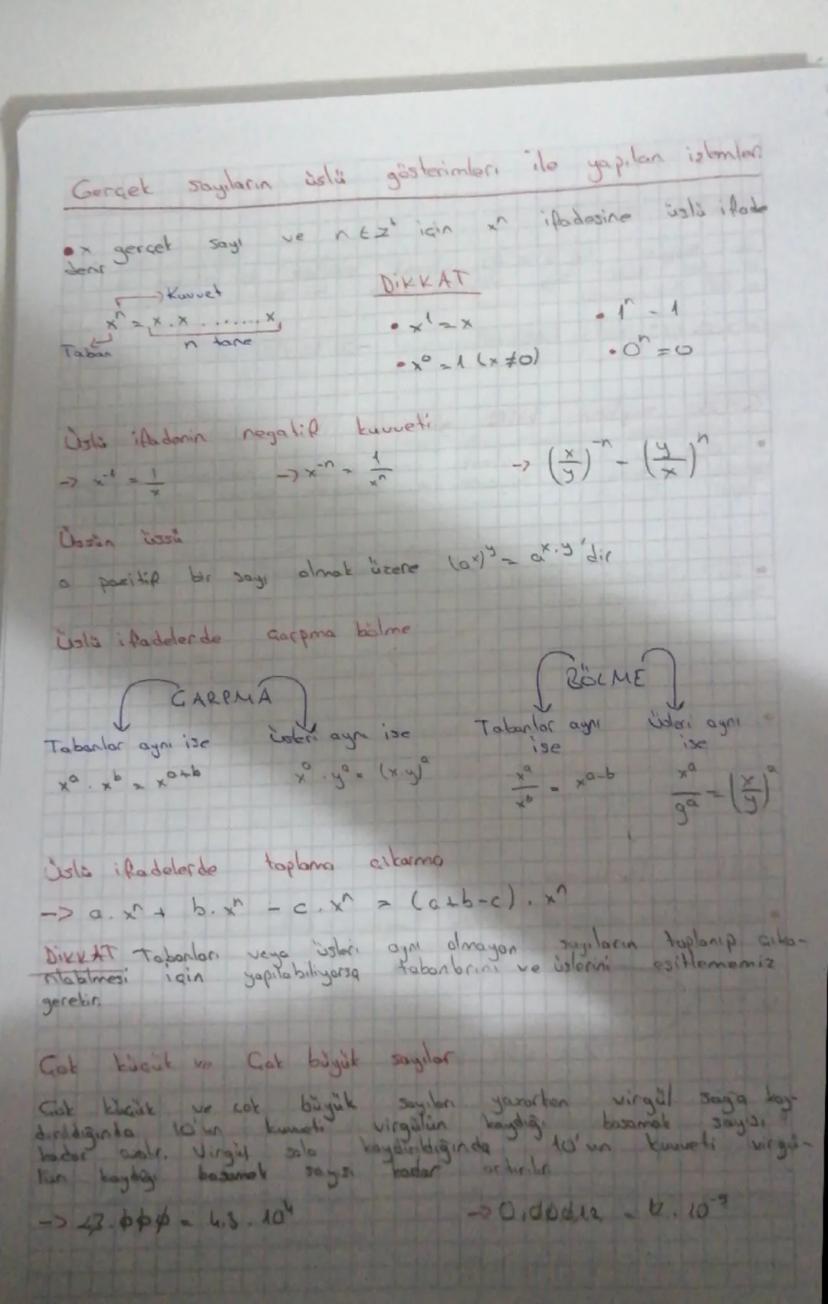 Gerçek sayıların üslü gösterimleri ile yapılan işlemler
• x gerçek sayı ve n ∈ Z⁺ için xⁿ ifadesine üslü ifade
denir
Kuvvet
xⁿ = x . x . ...... x
Taban
n tane
DİKKAT
• x¹ = x
• 1ⁿ = 1
• x⁰ = 1 (x ≠ 0)
• 0ⁿ = 0
Üslü ifadenin negatif kuvveti
→ x⁻¹ = 1/x → x⁻ⁿ = 1/xⁿ → (x/y)⁻ⁿ = (y/x)ⁿ
Üssün üssü
a pozitif bir sayı olmak üzere (aˣ)ʸ = aˣ·ʸ 'dir
Üslü ifadelerde çarpma bölme
ÇARPMA
BÖLME
Tabanlar aynı ise
Üsleri aynı ise
Tabanlar aynı ise
Üsleri aynı ise
xᵃ . xᵇ = xᵃ⁺ᵇ
xᵃ . yᵃ = (x.y)ᵃ
xᵃ/xᵇ = xᵃ⁻ᵇ
xᵃ/yᵃ = (x/y)ᵃ
Üslü ifadelerde toplama çıkarma
→ a . xⁿ + b . xⁿ - c . xⁿ = (a+b-c) . xⁿ
DİKKAT Tabanları veya üsleri aynı olmayan sayıların toplanıp çıka-
rılabilmesi için yapılabiliyorsa tabanlarını ve üslerini eşitlememiz
gerekir.
Çok küçük ve Çok büyük sayılar
Çok küçük ve çok büyük sayıları yazarken virgül sağa kay-
dırıldığında 10'un kuvveti virgülün kaydığı basamak sayısı
kadar azalır. Virgül sola kaydırıldığında 10'un kuvveti virgü-
lün kaydığı basamak sayısı kadar artırılır
→ 43.000 = 4,3 . 10⁴
→ 0,00012 =